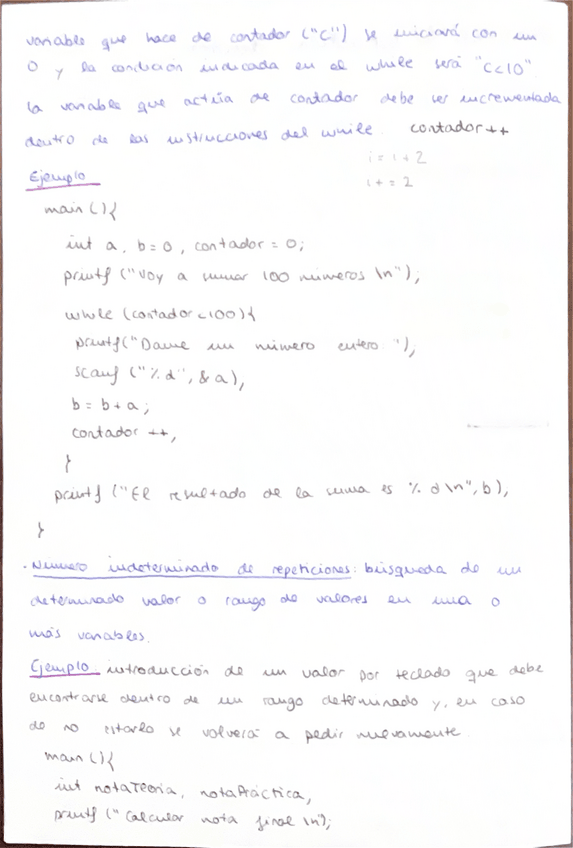 variable que hace de contador ("C") se iniciará con un
0 y la condición indicada en el while será "C<10"
la variable que actúa de contador debe ser incrementada
dentro de las instrucciones del while. contador++
i = i + 2
i += 2
Ejemplo
main (){
int a, b=0, contador = 0;
printf ("Voy a sumar 100 números \n");
while (contador<100){
printf("Dame un número entero: ");
scanf ("%d", &a);
b = b + a;
contador ++;
}
printf ("El resultado de la suma es %d\n", b);
}
· Número indeterminado de repeticiones: búsqueda de un
determinado valor o rango de valores en una o
más variables.
Ejemplo introducción de un valor por teclado que debe
encontrarse dentro de un rango determinado y, en caso
de no estarlo se volverá a pedir nuevamente.
main (){
int notaTeoria, notaPráctica;
printf (" Calcular nota final \n");